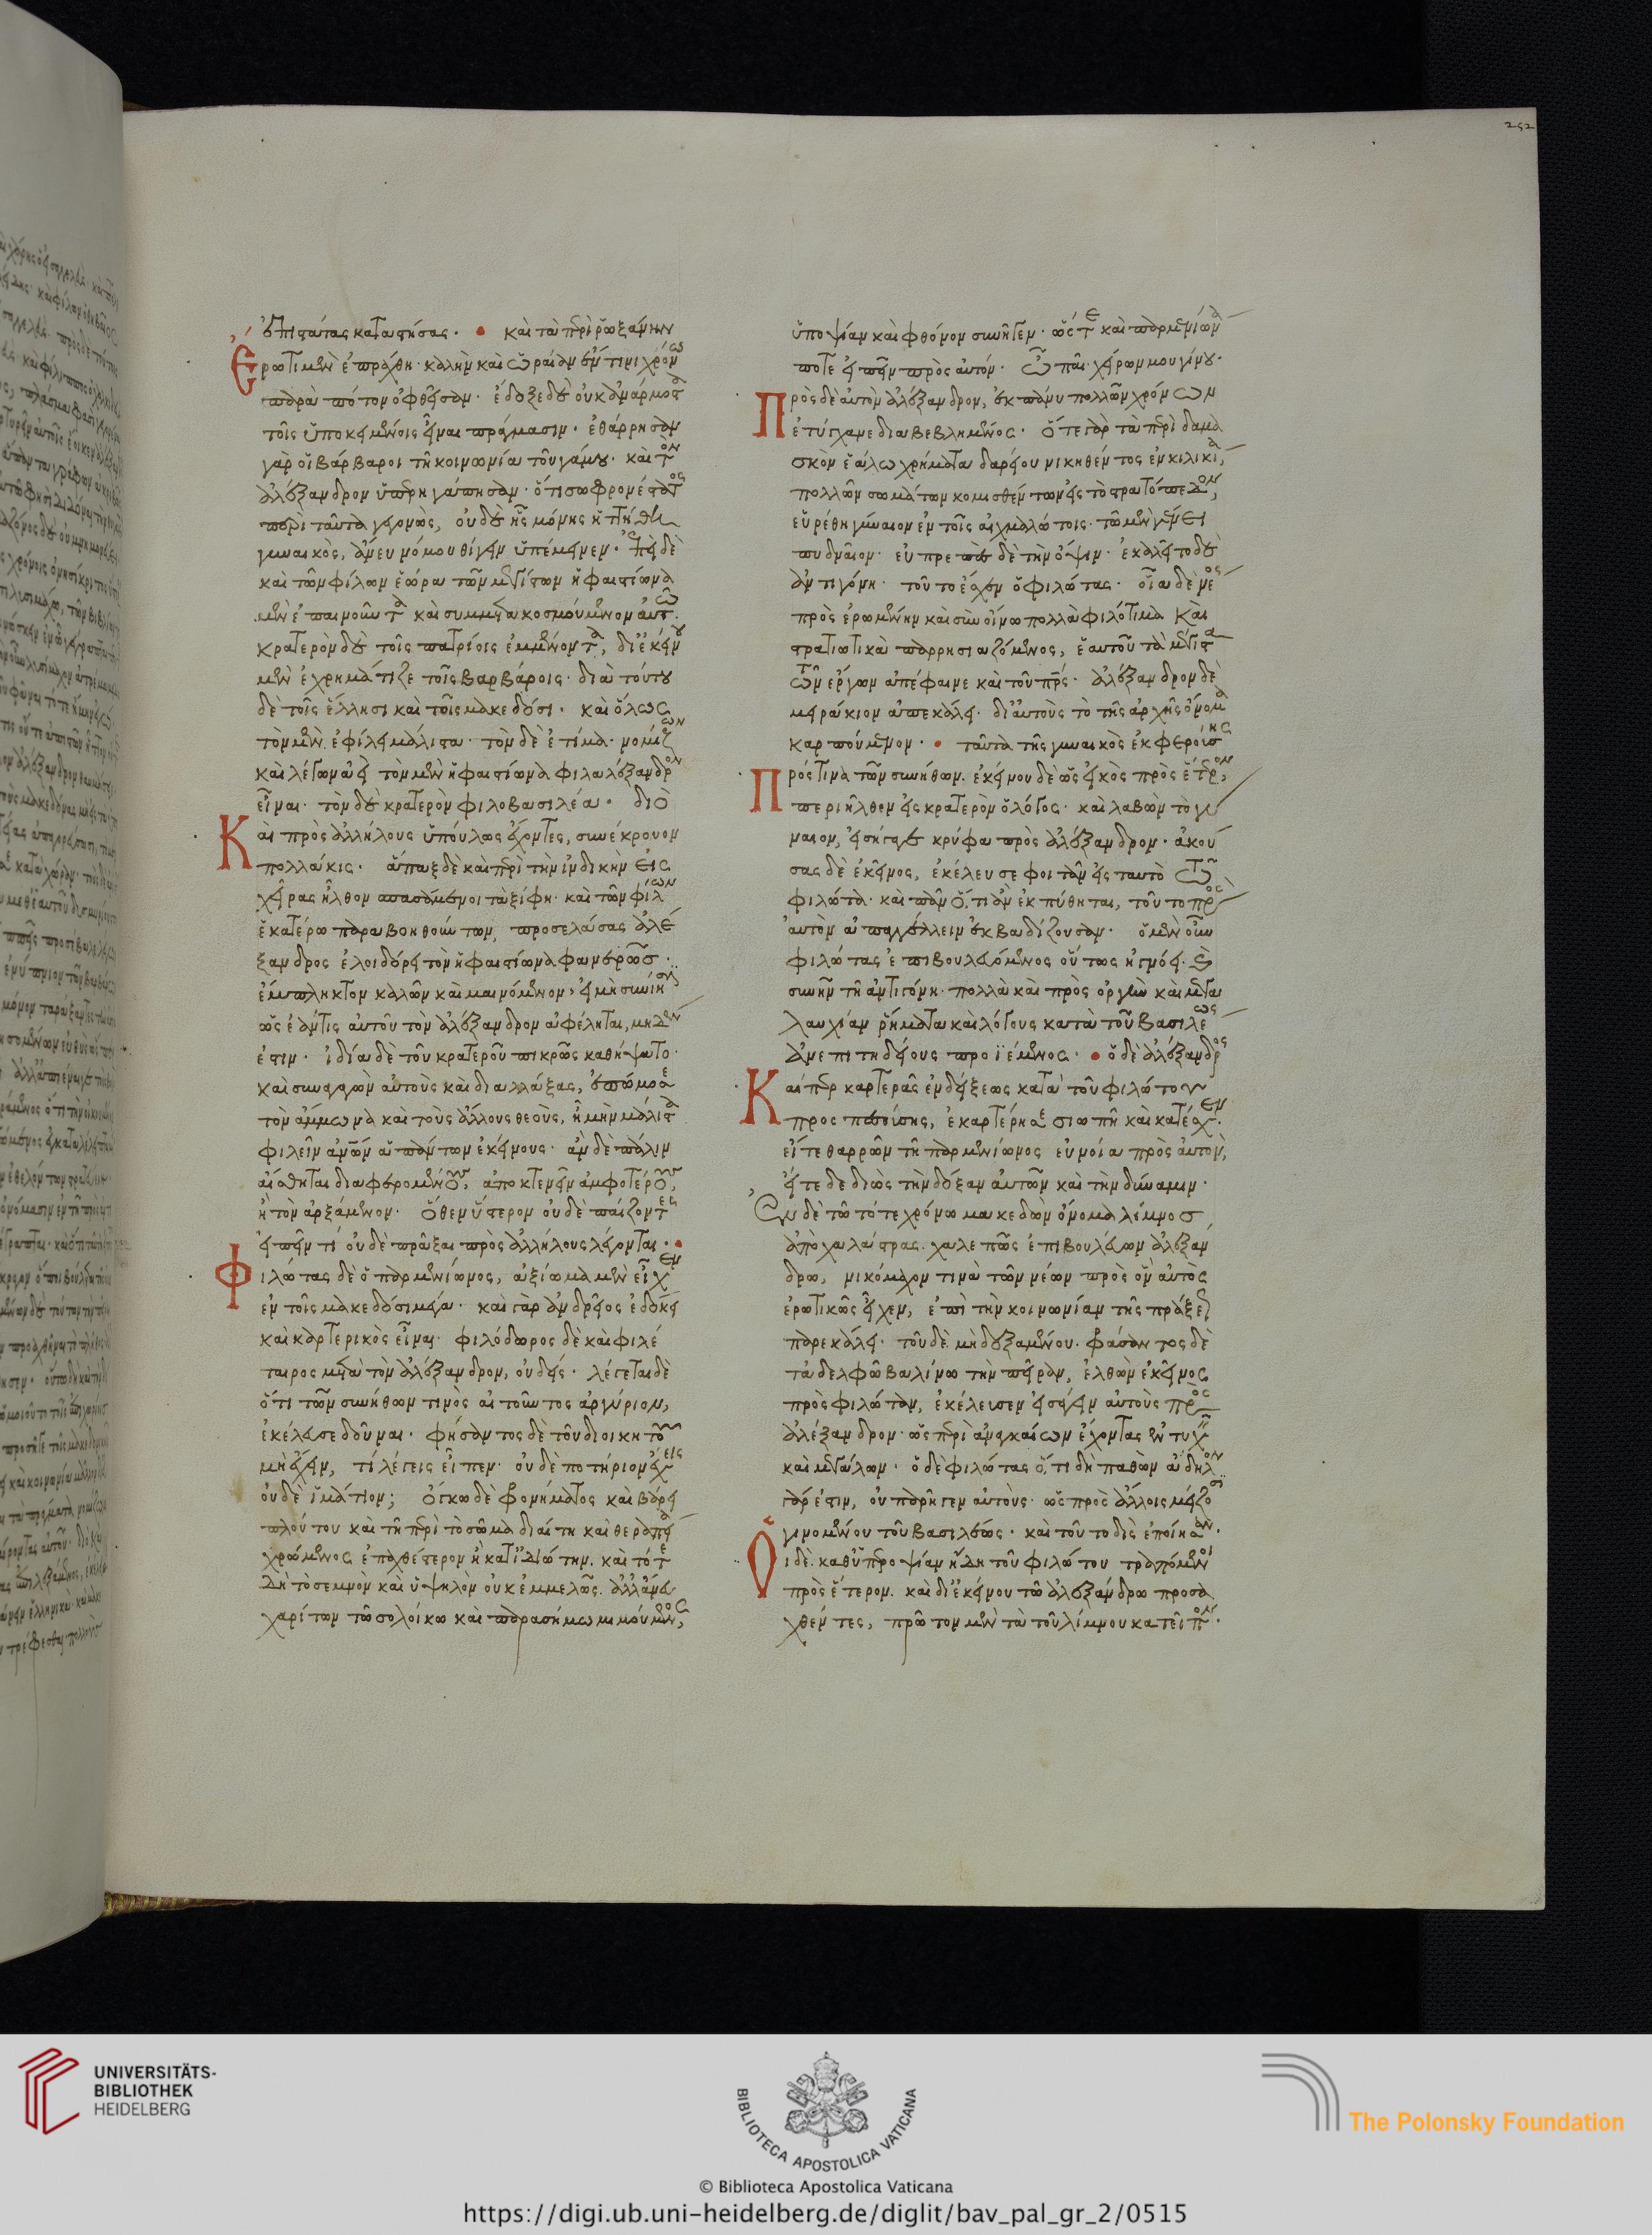 252
ἐπιστάτας καταστήσας· καὶ τὰ περὶ ῥωξάνην
Ἔρωτι μὲν ἐπράχθη· καλὴν καὶ ὡραίαν ἔν τινι χρόνω
παρὰ πότον ὀφθεῖσαν· ἔδοξε δὲ οὐκ ἀνάρμοστα
τοῖς ὑποκειμένοις εἶναι πράγμασιν· ἐθάρρησαν
γὰρ οἱ βάρβαροι τῆ κοινωνία τοῦ γάμου· καὶ τὸν
ἀλέξανδρον ὑπερηγάπησαν· ὅτι σωφρονέστατος
περὶ ταῦτα γεγονὼς, οὐδὲ ἧς μόνης ἡττήθη
γυναικὸς, ἄνευ νόμου θιγεῖν ὑπέμεινεν· ἐπεὶ δὲ
καὶ τῶν φίλων ἑώρα τῶν μεγίστων ἡφαιστίωνα
μὲν ἐπαινοῦντα καὶ συμμετακοσμούμενον αὐτῶ·
κρατερὸν δὲ τοῖς πατρίοις ἐμμένοντα, δι' ἐκείνου
μὲν ἐχρημάτιζε τοῖς βαρβάροις· διὰ τούτου
δὲ τοῖς ἕλλησι καὶ τοῖς μακεδόσι· καὶ ὅλως
τὸν μὲν ἐφίλει μάλιστα· τὸν δὲ ἐτίμα· νομίζων
καὶ λέγων ἀεὶ τὸν μὲν ἡφαιστίωνα φιλαλέξανδρον
εἶναι· τὸν δὲ κρατερὸν φιλοβασιλέα· διὸ
Καὶ πρὸς ἀλλήλους ὑπούλως ἔχοντες, συνέκρουον
πολλάκις· ἅπαξ δὲ καὶ περὶ τὴν ἰνδικὴν εἰς
χεῖρας ἦλθον σπασάμενοι τὰ ξίφη· καὶ τῶν φίλων
ἑκατέρω παραβοηθούντων, προσελάσας ἀλέ
ξανδρος ἐλοιδόρει τὸν ἡφαιστίωνα φανερῶς·
ἔμπληκτον καλῶν καὶ μαινόμενον, εἰ μὴ συνίησιν
ὡς ἐάν τις αὐτοῦ τὸν ἀλέξανδρον ἀφέληται, μηδέν
ἐστιν· ἰδία δὲ τοῦ κρατεροῦ πικρῶς καθήψατο·
καὶ συναγαγὼν αὐτοὺς καὶ διαλλάξας, ἐπώμοσε
τὸν ἄμμωνα καὶ τοὺς ἄλλους θεοὺς, ἦ μὴν μάλιστα
φιλεῖν ἀνθρώπων ἁπάντων ἐκείνους· ἂν δὲ πάλιν
αἴσθηται διαφερομένους, ἀποκτενεῖν ἀμφοτέρους,
ἢ τὸν ἀρξάμενον· ὅθεν ὕστερον οὐδὲ παίζοντες
εἰπεῖν τι οὐδὲ πρᾶξαι πρὸς ἀλλήλους λέγονται·
Φιλώτας δὲ ὁ παρμενίωνος, ἀξίωμα μὲν εἶχεν
ἐν τοῖς μακεδόσι μέγα· καὶ γὰρ ἀνδρεῖος ἐδόκει
καὶ καρτερικὸς εἶναι· φιλόδωρος δὲ καὶ φιλέ
ταιρος μετὰ τὸν ἀλέξανδρον, οὐδείς· λέγεται δὲ
ὅτι τῶν συνήθων τινὸς αἰτοῦντος ἀργύριον,
ἐκέλευσε δοῦναι· φήσαντος δὲ τοῦ διοικητοῦ
μὴ ἔχειν, τί λέγεις εἶπεν· οὐδὲ ποτήριον ἔχεις
οὐδὲ ἱμάτιον; ὄγκω δὲ φρονήματος καὶ βάρει
πλούτου καὶ τῆ περὶ τὸ σῶμα διαίτη καὶ θεραπεία
χρώμενος ἐπαχθέστερον ἢ κατ' ἰδιώτην· καὶ τότε
δὴ τὸ σεμνὸν καὶ ὑψηλὸν οὐκ ἐμμελῶς· ἀλλ' ἄνευ
χαρίτων τῶ σολοίκω καὶ παρασήμω μιμούμενος,
ὑποψίαν καὶ φθόνον συνῆγεν· ὥστε καὶ παρμενίωνα
ποτὲ εἰπεῖν πρὸς αὐτόν· ὦ παῖ χείρων μοι γίνου·
Πρὸς δὲ αὐτὸν ἀλέξανδρον, ἐκ πάνυ πολλῶν χρόνων
ἐτύγχανε διαβεβλημένος· ὅτε γὰρ τὰ περὶ δαμα
σκὸν ἑάλω χρήματα δαρείου νικηθέντος ἐν κιλικία,
πολλῶν σωμάτων κομισθέντων εἰς τὸ στρατόπεδον,
εὑρέθη γύναιον ἐν τοῖς αἰχμαλώτοις· τῶ μὲν γένει
πυδναῖον· εὐπρεπὲς δὲ τὴν ὄψιν· ἐκαλεῖτο δὲ
ἀντιγόνη· τοῦτο ἔσχεν ὁ φιλώτας· οἷα δὲ νέος
πρὸς ἐρωμένην καὶ σὺν οἴνω πολλὰ φιλότιμα καὶ
στρατιωτικὰ παρρησιαζόμενος, ἑαυτοῦ τὰ μέγιστα
τῶν ἔργων ἀπέφαινε καὶ τοῦ πατρός· ἀλέξανδρον δὲ
μειράκιον ἀπεκάλει· δι' αὐτοὺς τὸ τῆς ἀρχῆς ὄνομα
καρπούμενον· ταῦτα τῆς γυναικὸς ἐκφερούσης
Πρός τινα τῶν συνήθων· ἐκείνου δὲ ὡς εἰκὸς πρὸς ἕτερον,
περιῆλθεν εἰς κρατερὸν ὁ λόγος· καὶ λαβὼν τὸ γύ
ναιον, εἰσήγαγε κρύφα πρὸς ἀλέξανδρον· ἀκού
σας δὲ ἐκεῖνος, ἐκέλευσε φοιτᾶν εἰς ταυτὸ τῶ
φιλώτα· καὶ πᾶν ὅ,τι ἂν ἐκπύθηται, τοῦτο πρὸς
αὐτὸν ἀπαγγέλλειν ἐκ βαδίζουσαν· ὁ μὲν οὖν
φιλώτας ἐπιβουλευόμενος οὕτως ἠγνόει· καὶ
συνῆν τῆ ἀντιγόνη· πολλὰ καὶ πρὸς ὀργὴν καὶ μεγα
λαυχίαν ῥήματα καὶ λόγους κατὰ τοῦ βασιλέως
ἀνεπιτηδείους προϊέμενος· ὁ δὲ ἀλέξανδρος
Καίπερ καρτερᾶς ἐνδείξεως κατὰ τοῦ φιλώτου
προσπεσούσης, ἐκαρτέρησε σιωπῆ καὶ κατέσχεν·
εἴτε θαρρῶν τῆ παρμενίωνος εὐνοία πρὸς αὐτὸν,
εἴτε δεδιὼς τὴν δόξαν αὐτῶν καὶ τὴν δύναμιν·
Ἐν δὲ τῶ τότε χρόνω μακεδὼν ὄνομα λίμνος
ἀπὸ χαλαίστρας· χαλεπῶς ἐπιβουλεύων ἀλεξάν
δρω, νικόμαχόν τινα τῶν νέων πρὸς ὃν αὐτὸς
ἐρωτικῶς εἶχεν, ἐπὶ τὴν κοινωνίαν τῆς πράξεως
παρεκάλει· τοῦ δὲ μὴ δεξαμένου· φράσαντος δὲ
τἀδελφῶ βαλίνω τὴν πεῖραν, ἐλθὼν ἐκεῖνος
πρὸς φιλώταν, ἐκέλευσεν εἰσάγειν αὐτοὺς πρὸς
ἀλέξανδρον· ὡς περὶ ἀναγκαίων ἔχοντας ἐντυχεῖν
καὶ μεγάλων· ὁ δὲ φιλώτας ὅ,τι δὴ παθὼν ἄδηλον
γάρ ἐστιν, οὐ παρῆγεν αὐτοὺς· ὡς πρὸς ἄλλοις μείζοσι
γινομένου τοῦ βασιλέως· καὶ τοῦτο δὶς ἐποίησαν·
Οἱ δὲ καθ' ὑπεροψίαν ἤδη τοῦ φιλώτου τραπόμενοι
πρὸς ἕτερον· καὶ δι' ἐκείνου τῶ ἀλεξάνδρω προσα
χθέντες, πρῶτον μὲν τὰ τοῦ λίμνου κατεῖπον·
UNIVERSITÄTS-
BIBLIOTHEK
HEIDELBERG
BIBLIOTECA APOSTOLICA VATICANA
The Polonsky Foundation
© Biblioteca Apostolica Vaticana
https://digi.ub.uni-heidelberg.de/diglit/bav_pal_gr_2/0515